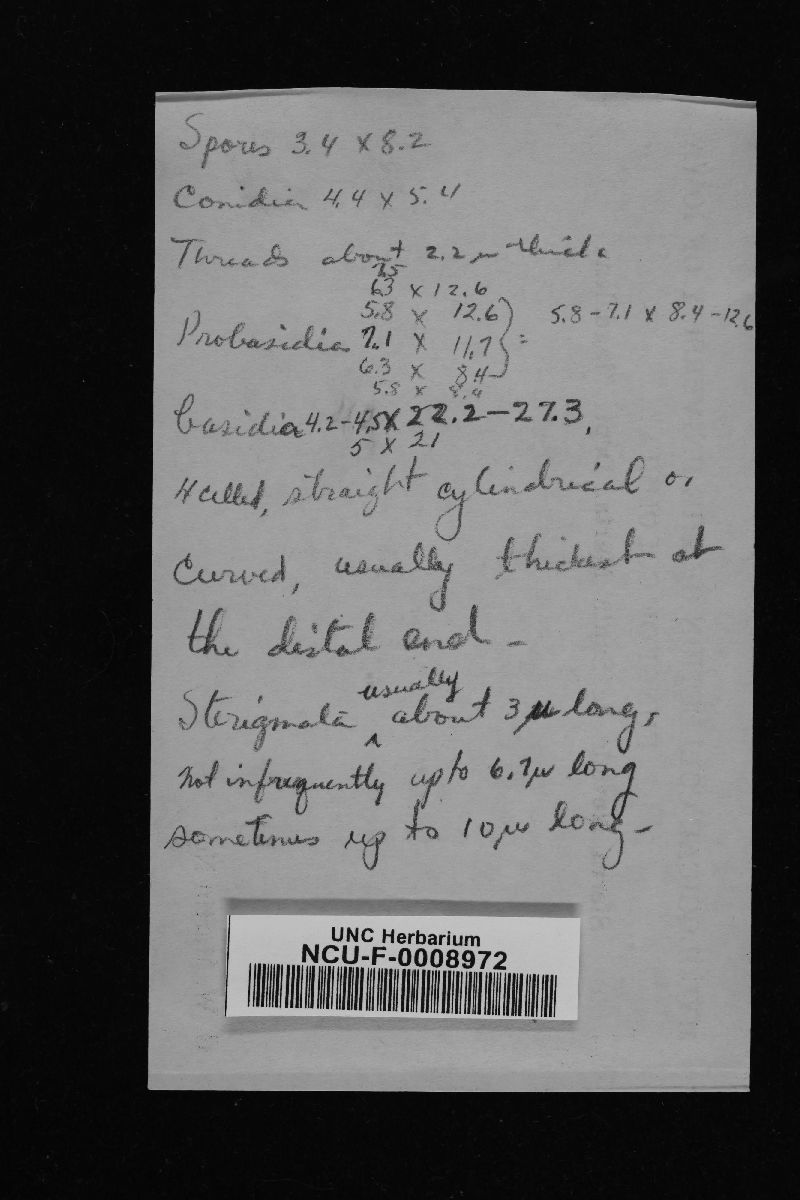 Spores 3.4 x 8.2
Conidia 4.4 x 5.4
Threads about 2.2 µ thick
7.5
6.3 x 12.6
5.8 x 12.6
Probasidia 7.1 x 11.7 } = 5.8 - 7.1 x 8.4 - 12.6
6.3 x 8.4
5.8 x 8.4
basidia 4.2-4.5 x 22.2 - 27.3,
5 x 21
4 celled, straight cylindrical or
curved, usually thickest at
the distal end -
Sterigmata ^ usually about 3 µ long,
not infrequently up to 6.7 µ long
sometimes up to 10 µ long -
UNC Herbarium
NCU-F-0008972